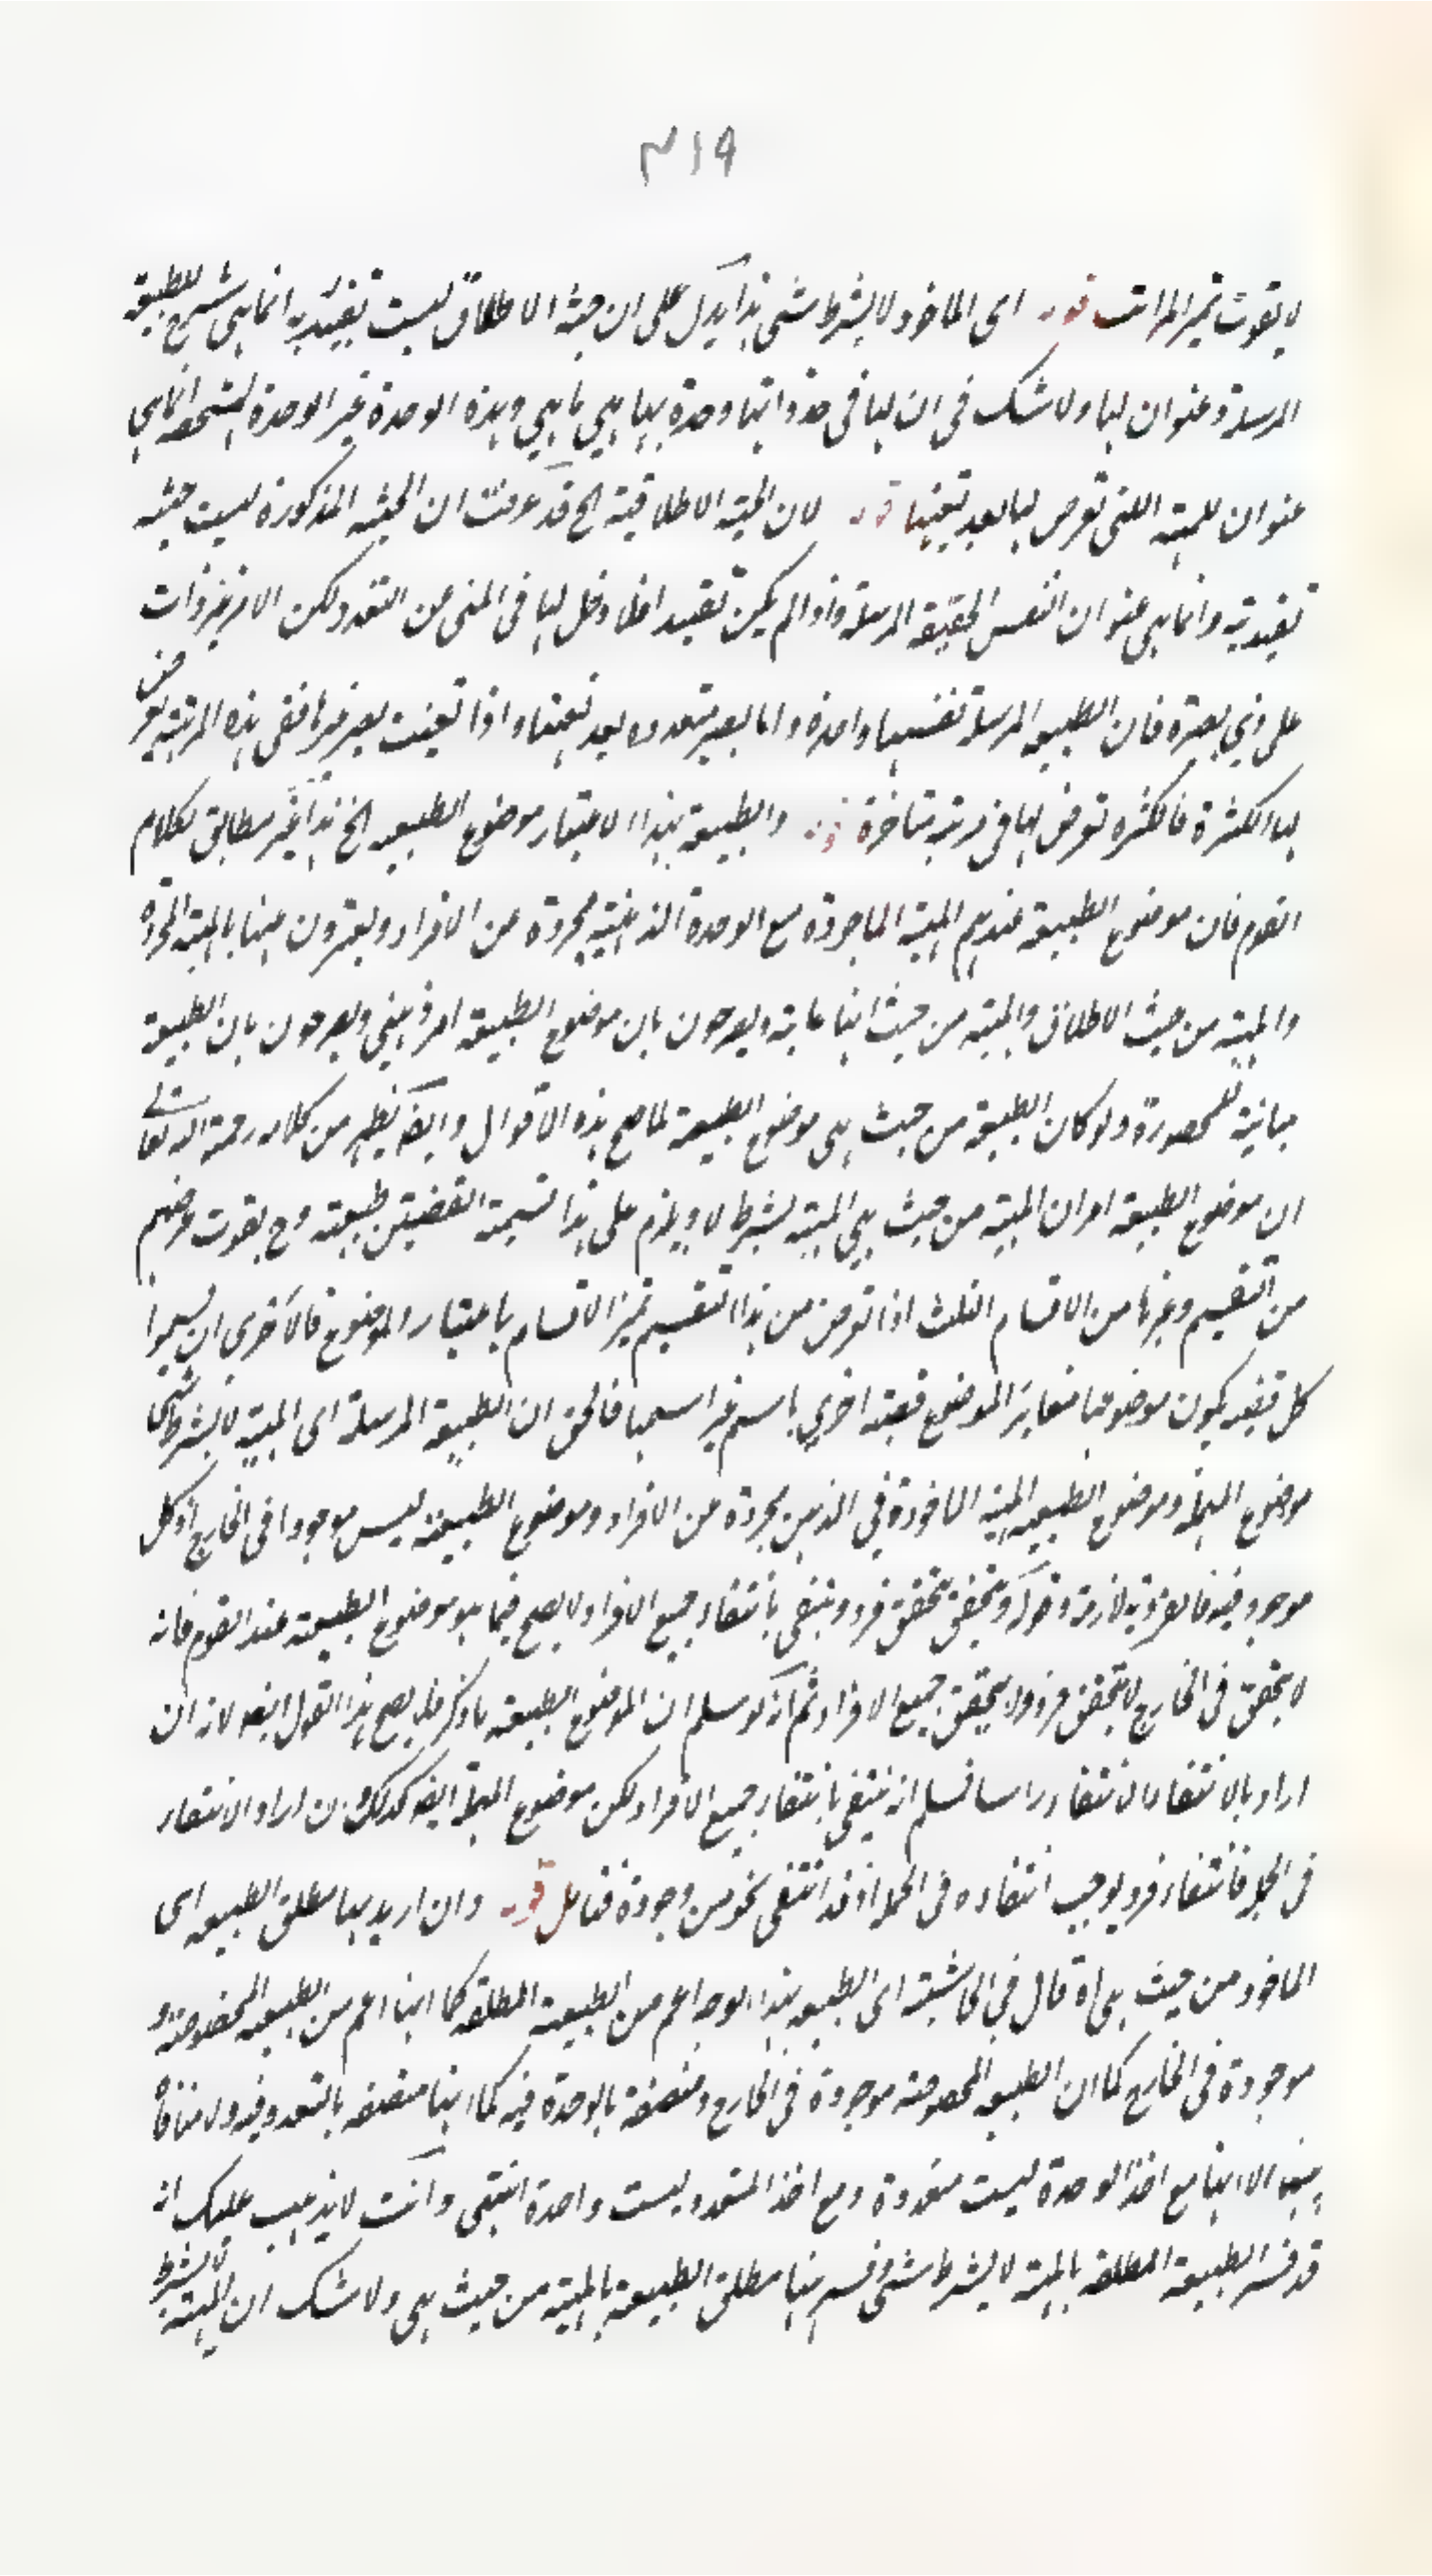 ٣١٩
لا يفوت تميز المراتب قوله اى الماخوذ لا بشرط شئ هذا يدل على ان حيثية الاطلاق ليست تقييدية انما هى شرح للطبيعة
المرسلة وعنوان لها ولا شك فى ان لها فى حد ذاتها وحدة بها هى ما هى وهذه الوحدة غير الوحدة انما هى
عنوان للمهية اللتى تعرض لها بعد تعينها قوله لان الحيثية الاطلاقية الخ قد عرفت ان الحيثية المذكورة ليست حيثية
تقييدية وانما هى عنوان لنفس الحقيقة المرسلة واذا لم يكن تقييد افلا دخل لها فى المنع عن التعدد ولكن الامر غير ذات
على ذى بصيرة فان الطبيعة المرسلة نفسها واحدة وانما يصير متعددة بعد تعينها واذا تعينت يصير ففى هذه المرتبة يعرض
لها الكثرة فالكثرة تعرض لها فى مرتبة متاخرة قوله والطبيعة بهذا الاعتبار موضوع الطبيعية الخ هذا غير مطابق لكلام
القوم فان موضوع الطبيعية عندهم المهية الماخوذة مع الوحدة الذهنية مجردة عن الافراد ويعبرون عنها بالمهية المجردة
والمهية من حيث الاطلاق والمهية من حيث انها عامة ويصرحون بان موضوع الطبيعية امر ذهنى ويصرحون بان الطبيعية
مباينة للمحصورة ولو كان الطبيعة من حيث هى موضوع الطبيعية لما صح هذه الاقوال وايضا يظهر من كلامه رحمه الله تعالى
ان موضوع الطبيعية اوان المهية من حيث هى المهية بشرط لا ويلزم على هذا تسمية القضيتين طبيعية وح يفوت غرضهم
من التقسيم وغيرها من الاقسام الثلث اذ الغرض من هذا التقسيم تميز الاقسام باعتبار الموضوع فالاحرى ان يسموا
كل قضية يكون موضوعها مغايرا لموضوع قضية اخرى باسم غير اسمها فالحق ان الطبيعة المرسلة اى المهية لا بشرط شئ
موضوع المهملة وموضوع الطبيعية المهية الماخوذة فى الذهن مجردة عن الافراد وموضوع الطبيعية ليس موجودا فى الخارج اذ كل
موجود فيه فالفردية لازمة وقوله ويتحقق بتحقق فرد وينتفى بانتفاء جميع الافراد لا يصح فيما هو موضوع الطبيعية عند القوم فانه
لا يتحقق فى الخارج لا بتحقق فرد ولا بتحقق جميع الافراد ثم انه لو سلم ان الموضوع الطبيعية ما ذكر فلا يصح هذا القول ايضا لانه ان
اراد بالانتفاء الانتفاء راسا فسلم انه ينتفى بانتفاء جميع الافراد لكن موضوع المهملة ايضا كذلك وان اراد الانتفاء
فى الجملة فانتفاء فرد يوجب انتفاءه فى الجملة اذ قد انتفى نحو من وجوده فتامل قوله وان اريد بها مطلق الطبيعة اى
الماخوذ من حيث هى اه قال فى الحاشية اى الطبيعة بهذا الوجه اعم من الطبيعة المطلقة كما انها اعم من الطبيعة المخصوصة و
موجودة فى الخارج كما ان الطبيعة المخصوصة موجودة فى الخارج ومتصفة بالوحدة فيه كما انها متصفة بالتعدد فيه ولا منافاة
بينهما الا انها مع اخذ الوحدة ليست متعددة ومع اخذ التعدد ليست واحدة انتهى وانت لا يذهب عليك انه
قد فسر الطبيعة المطلقة بالمهية لا بشرط شئ وفسر هنا مطلق الطبيعة بالمهية من حيث هى ولا شك ان المهية لا بشرط